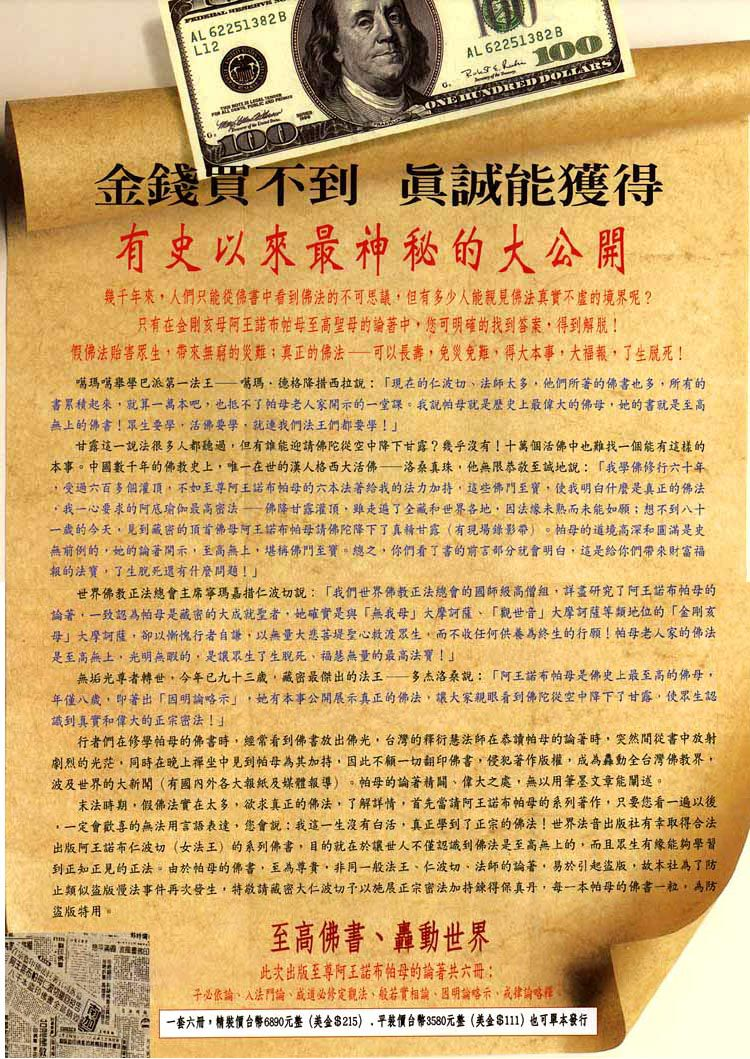 FEDERAL RESERVE NOTE
AL 62251382 B
L12
AL 62251382 B
100
ONE HUNDRED DOLLARS
100
金錢買不到　眞誠能獲得
有史以來最神秘的大公開
幾千年來，人們只能從佛書中看到佛法的不可思議，但有多少人能親見佛法真實不虛的境界呢？
只有在金剛亥母阿王諾布帕母至高聖母的論著中，您可明確的找到答案，得到解脫！
假佛法貽害眾生，帶來無窮的災難；真正的佛法──可以長壽，免災免難，得大本事，大福報，了生脫死！
噶瑪噶舉學巴派第一法王──噶瑪．德格降措西拉說：「現在的仁波切、法師太多，他們所著的佛書也多，所有的
書累積起來，就算一萬本吧，也抵不了帕母老人家開示的一堂課。我說帕母就是歷史上最偉大的佛母，她的書就是至高
無上的佛書！眾生要學，活佛要學，就連我們法王們都要學！」
甘露這一說法很多人都聽過，但有誰能迎請佛陀從空中降下甘露？幾乎沒有！十萬個活佛中也難找一個能有這樣的
本事。中國數千年的佛教史上，唯一在世的漢人格西大活佛──洛桑真珠，他無限恭敬至誠地說：「我學佛修行六十年
，受過六百多個灌頂，不如至尊阿王諾布帕母的六本法著給我的法力加持，這些佛門至寶，使我明白什麼是真正的佛法
，我一心要求的阿底瑜伽最高密法──佛降甘露灌頂，雖走遍了全藏和世界各地，因法緣未熟而未能如願；想不到八十
一歲的今天，見到藏密的頂首佛母阿王諾布帕母請佛陀降下了真精甘露（有現場錄影帶）。帕母的道境高深和圓滿是史
無前例的，她的論著開示，至高無上，堪稱佛門至寶。總之，你們看了書的前言部分就會明白，這是給你們帶來財富福
報的法寶，了生脫死還有什麼問題！」
世界佛教正法總會主席寧瑪嘉措仁波切說：「我們世界佛教正法總會的國師級高僧組，詳盡研究了阿王諾布帕母的
論著，一致認為帕母是藏密的大成就聖者，她確實是與「無我母」大摩訶薩、「觀世音」大摩訶薩等類地位的「金剛亥
母」大摩訶薩，卻以慚愧行者自謙，以無量大悲菩堤聖心救渡眾生，而不收任何供養為終生的行願！帕母老人家的佛法
是至高無上，光明無暇的，是讓眾生了生脫死、福慧無量的最高法寶！」
無垢光尊者轉世，今年已九十三歲，藏密最傑出的法王──多杰洛桑說：「阿王諾布帕母是佛史上最至高的佛母，
年僅八歲，即著出「因明論略示」，她有本事公開展示真正的佛法，讓大家親眼看到佛陀從空中降下了甘露，使眾生認
識到真實和偉大的正宗密法！」
行者們在修學帕母的佛書時，經常看到佛書放出佛光，台灣的釋衍慧法師在恭讀帕母的論著時，突然間從書中放射
劇烈的光茫，同時在晚上禪坐中見到帕母為其加持，因此不顧一切翻印佛書，侵犯著作版權，成為轟動全台灣佛教界，
波及世界的大新聞（有國內外各大報紙及媒體報導）。帕母的論著精闢、偉大之處，無以用筆墨文章能闡述。
末法時期，假佛法實在太多，欲求真正的佛法，了解詳情，首先當請阿王諾布帕母的系列著作，只要您看一遍以後
，一定會歡喜的無法用言語表達，您會說：我這一生沒有白活，真正學到了正宗的佛法！世界法音出版社有幸取得合法
出版阿王諾布仁波切（女法王）的系列佛書，目的就在於讓世人不僅認識到佛法是至高無上的，而且眾生有緣能夠學習
到正知正見的正法。由於帕母的佛書，至為尊貴，非同一般法王、仁波切、法師的論著，易於引起盜版，故本社為了防
止類似盜版慢法事件再次發生，特敬請藏密大仁波切予以施展正宗密法加持鍊得保真丹，每一本帕母的佛書一粒，為防
盜版特用。
至高佛書、轟動世界
此次出版至尊阿王諾布帕母的論著共六冊：
子必依論、入法門論、成道必修定觀法、般若實相論、因明論略示、戒律論略釋。
一套六冊，精裝價台幣6890元整（美金$215）．平裝價台幣3580元整（美金$111）也可單本發行